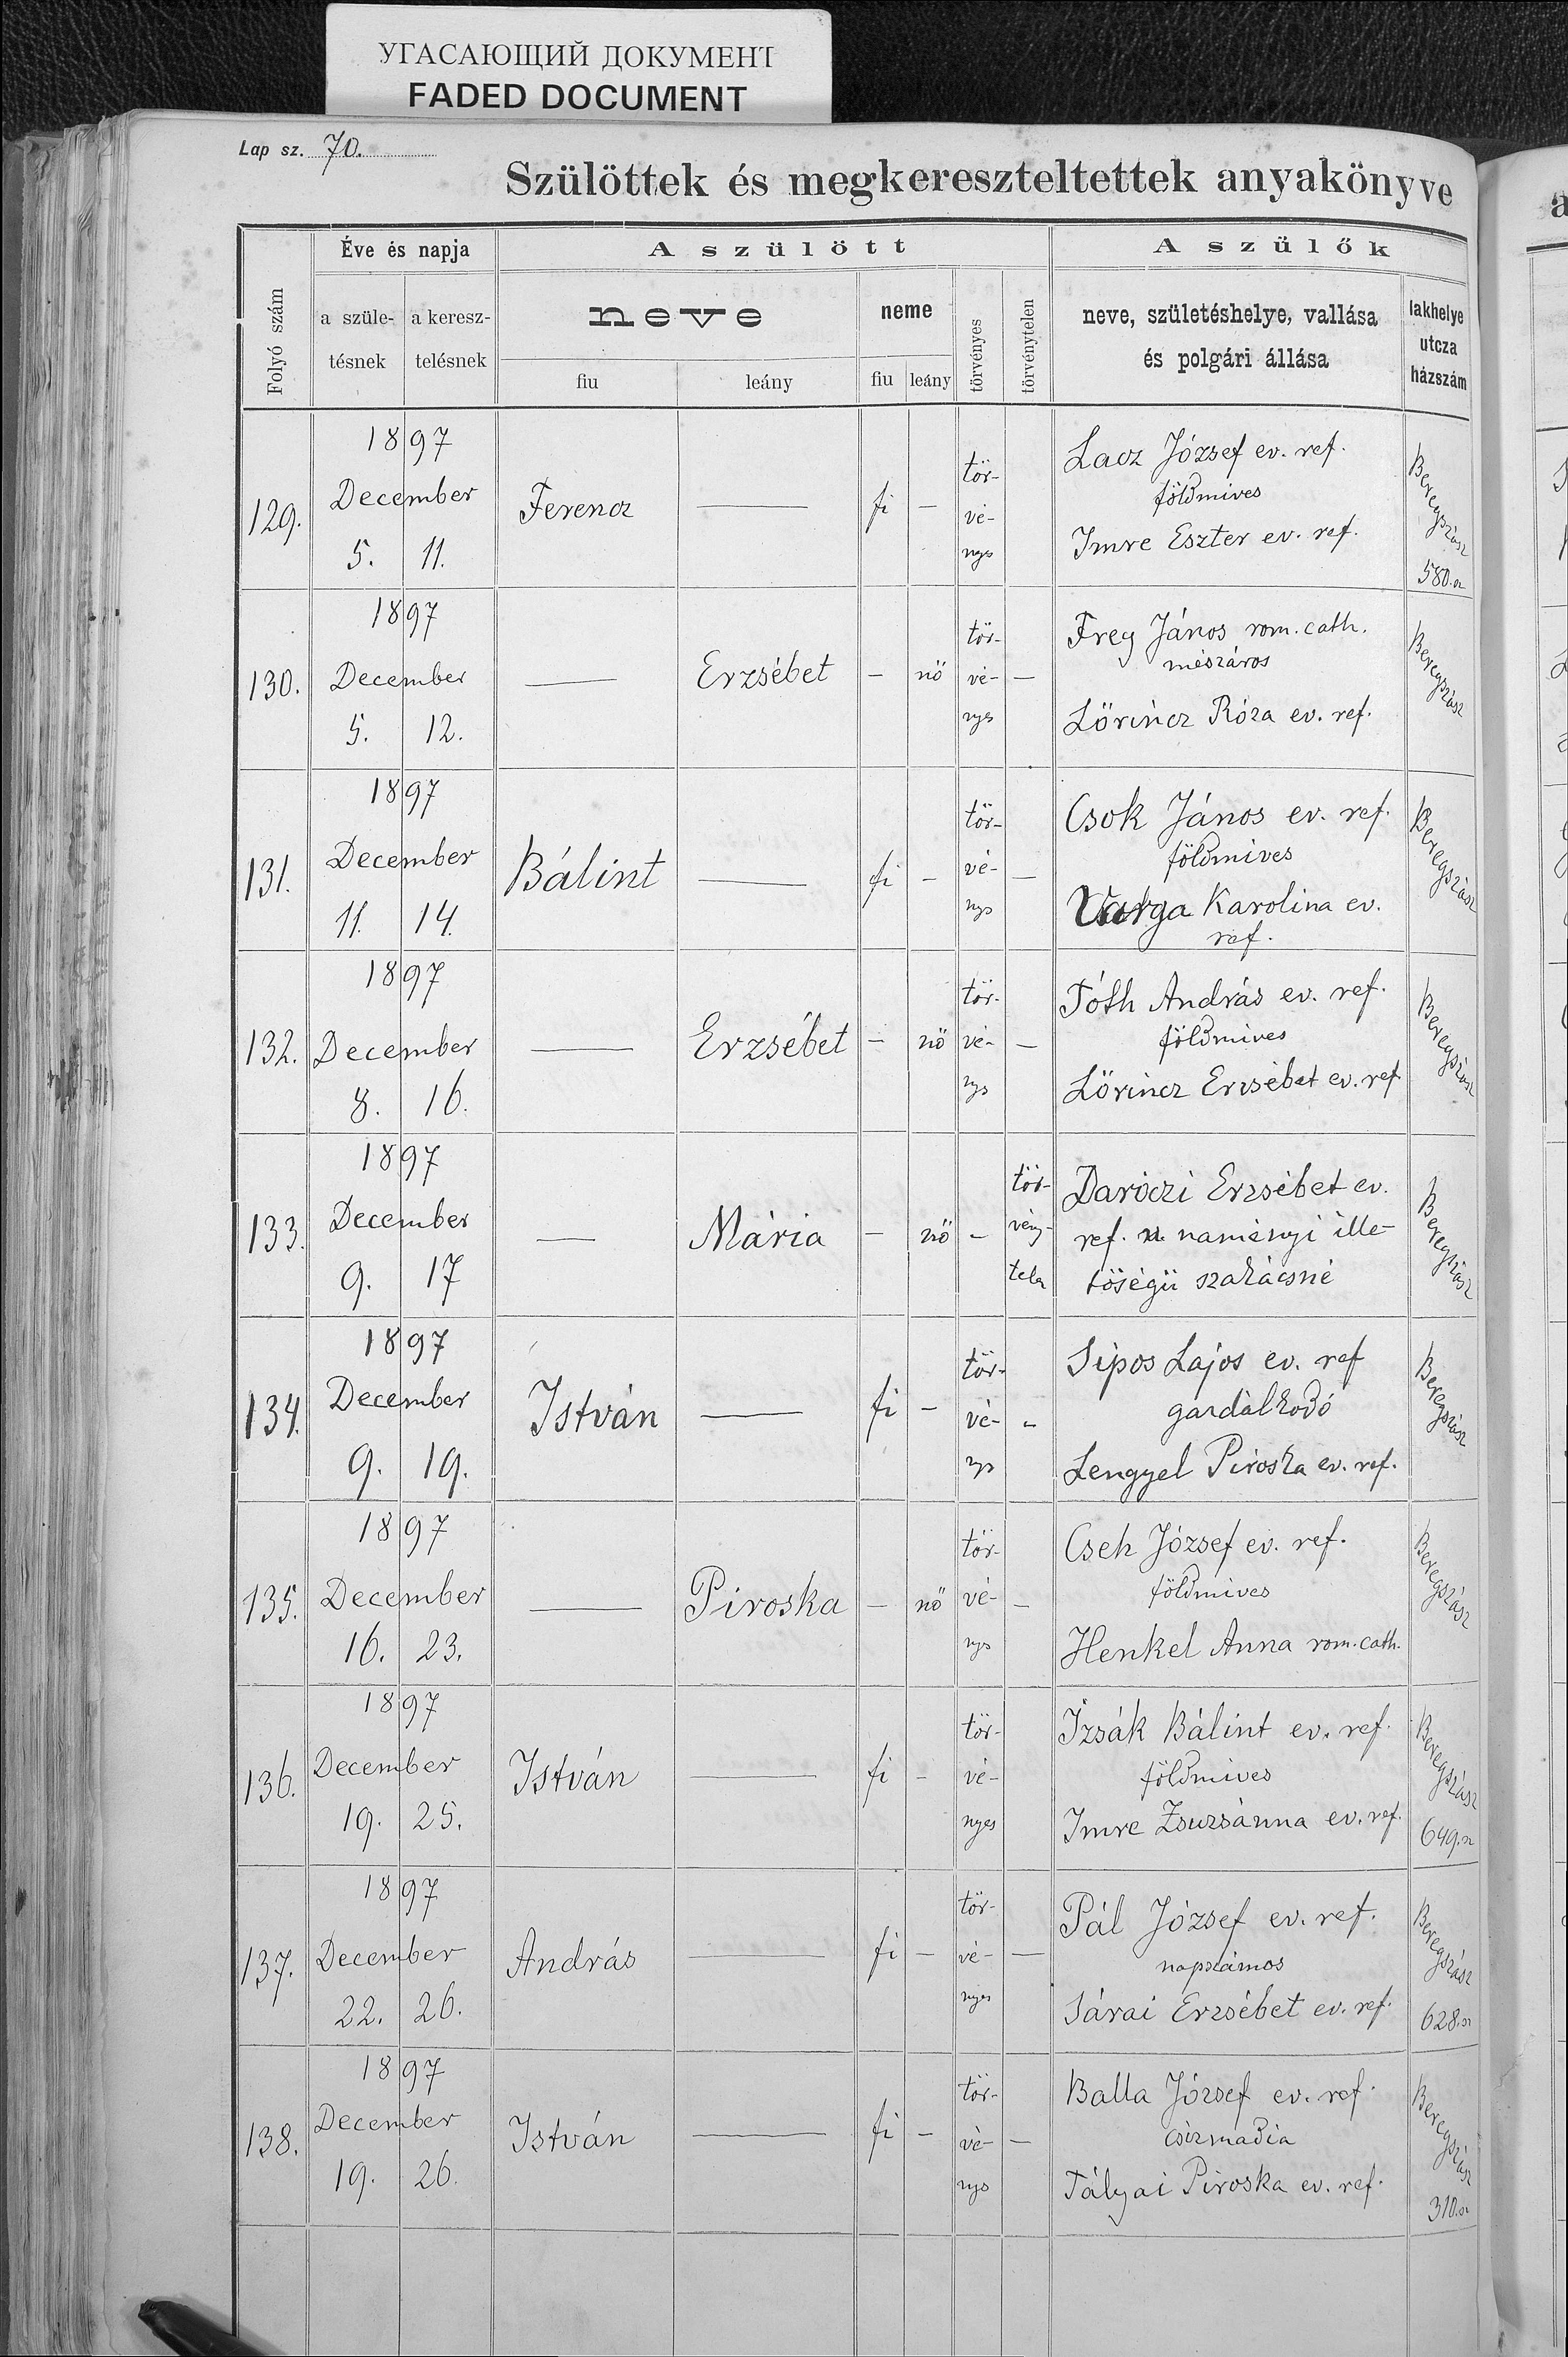 УГАСАЮЩИЙ ДОКУМЕНТ
FADED DOCUMENT
Lap sz. 70.
Szülöttek és megkereszteltettek anyakönyve
Folyó szám
Éve és napja
a szüle-
tésnek
a keresz-
telésnek
A szülött
neve
fiu
leány
neme
fiu
leány
törvényes
törvénytelen
A szülők
neve, születéshelye, vallása
és polgári állása
lakhelye
utcza
házszám
129.
1897
December
5. 11.
Ferencz —
fi —
tör-
vé-
nys
Lacz József ev. ref.
földmives
Imre Eszter ev. ref.
Beregszász
580.sz
130.
1897
December
5. 12.
— Erzsébet
— nö
tör-
vé- —
nyes
Frey János rom. cath.
mészáros
Lörincz Róza ev. ref.
Beregszász
131.
1897
December
11. 14.
Bálint —
fi —
tör-
vé- —
nys
Csok János ev. ref.
földmives
Varga Karolina ev.
ref.
Beregszász
132.
1897
December
8. 16.
— Erzsébet
— nö
tör-
vé- —
nys
Tóth András ev. ref.
földmives
Lörincz Erzsébet ev. ref.
Beregszász
133.
1897
December
9. 17
— Mária
— nö —
tör-
vény-
telen
Daróczi Erzsébet ev.
ref. n. naményi ille-
töségü szakácsné
Beregszász
134.
1897
December
9. 19.
István —
fi —
tör-
vé- —
nys
Sipos Lajos ev. ref
gazdálkodó
Lengyel Piroska ev. ref.
Beregszász
135.
1897
December
16. 23.
— Piroska
— nö
tör-
vé- —
nys
Cseh József ev. ref.
földmives
Henkel Anna rom. cath.
Beregszász
136.
1897
December
19. 25.
István —
fi —
tör-
vé-
nyes
Izsák Bálint ev. ref.
földmives
Imre Zsuzsánna ev. ref.
Beregszász
649.sz
137.
1897
December
22. 26.
András —
fi —
tör-
vé- —
nyes
Pál József ev. ref.
napszámos
Sárai Erzsébet ev. ref.
Beregszász
628.sz
138.
1897
December
19. 26.
István —
fi —
tör-
vé- —
nys
Balla József ev. ref.
csizmadia
Tályai Piroska ev. ref.
Beregszász
310.sz